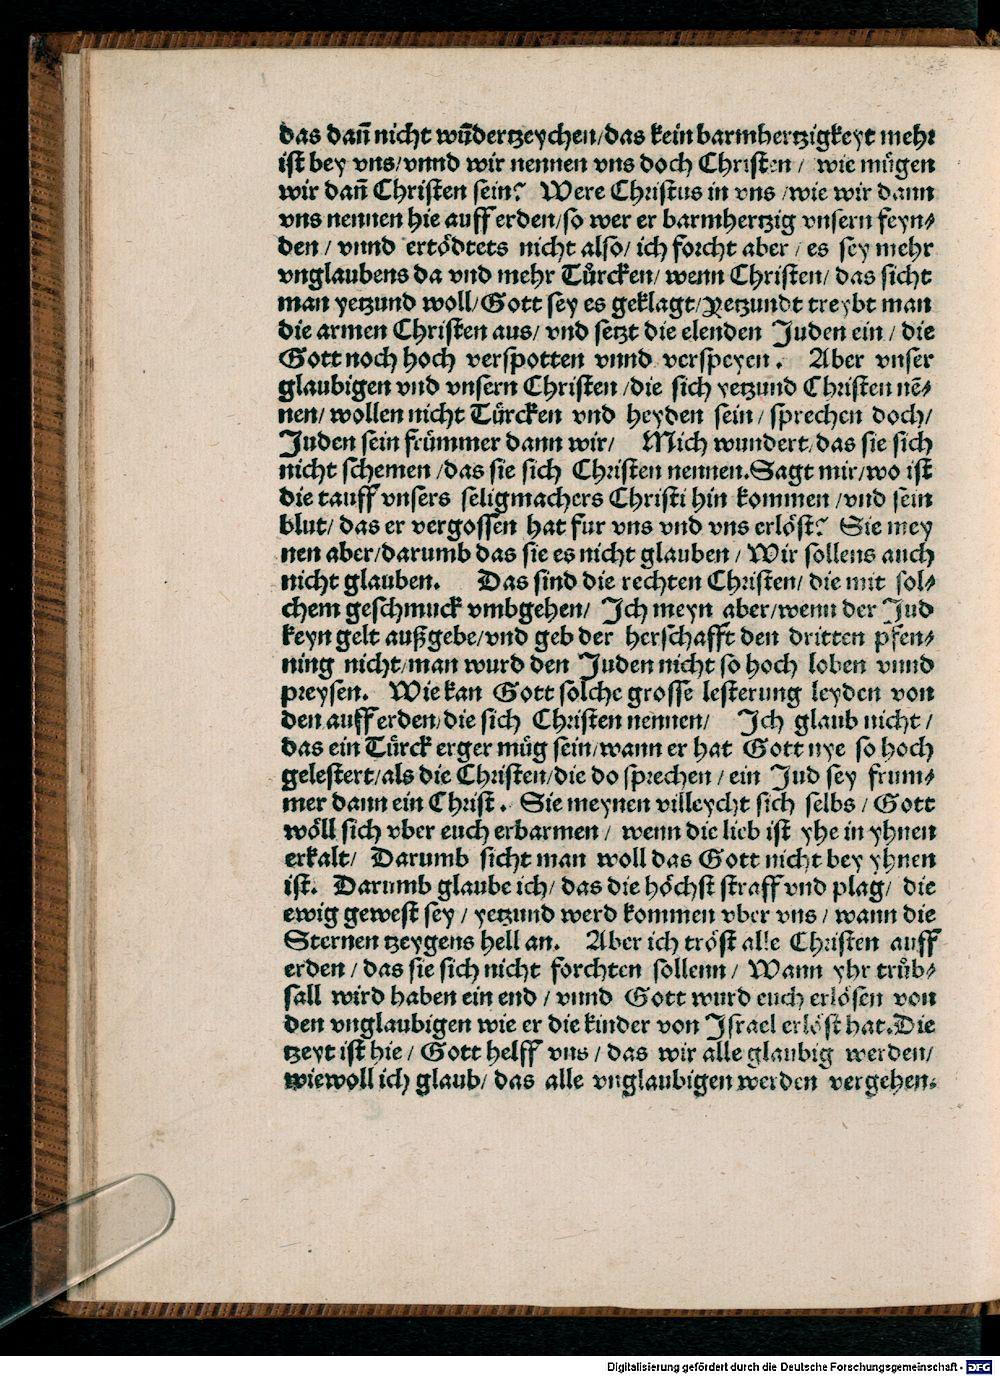 das dañ nicht wūderzeychen/das kein barmhertzigkeyt mehr
ist bey vns/vnnd wir nennen vns doch Christen/ wie mügen
wir dañ Christen sein? Were Christus in vns/wie wir dann
vns nennen hie auff erden/so wer er barmhertzig vnsern feyn⸗
den/ vnnd ertödtets nicht also/ ich forcht aber/ es sey mehr
vnglaubens da vnd mehr Tůrcken/ wenn Christen/ das sicht
man yetzund woll/Gott sey es geklagt/Yetzundt treybt man
die armen Christen aus/ vnd setzt die elenden Juden ein/ die
Gott noch hoch verspotten vnnd verspeyen. Aber vnser
glaubigen vnd vnsern Christen/die sich yetzund Christen nē⸗
nen/ wollen nicht Türcken vnd heyden sein/ sprechen doch/
Juden sein frümmer dann wir/ Mich wundert/das sie sich
nicht schemen/das sie sich Christen nennen.Sagt mir/wo ist
die tauff vnsers seligmachers Christi hin kommen/vnd sein
blut/ das er vergossen hat fur vns vnd vns erlöst? Sie mey
nen aber/darumb das sie es nicht glauben/ Wir sollens auch
nicht glauben. Das sind die rechten Christen/ die mit sol⸗
chem geschmuck vmbgehen/ Ich meyn aber/wenn der Jud
keyn gelt außgebe/vnd geb der herschafft den dritten pfen⸗
ning nicht/man wurd den Juden nicht so hoch loben vnnd
preysen. Wie kan Gott solche grosse lesterung leyden von
den auff erden/die sich Christen nennen/ Ich glaub nicht/
das ein Türck erger müg sein/wann er hat Gott nye so hoch
gelestert/als die Christen/die do sprechen/ ein Jud sey frum⸗
mer dann ein Christ. Sie meynen villeycht sich selbs/ Gott
wöll sich vber euch erbarmen/ wenn die lieb ist yhe in yhnen
erkalt/ Darumb sicht man woll das Gott nicht bey yhnen
ist. Darumb glaube ich/ das die höchst straff vnd plag/ die
ewig gewest sey/ yetzund werd kommen vber vns/ wann die
Sternen tzeygens hell an. Aber ich tröst alle Christen auff
erden/ das sie sich nicht forchten sollenn/ Wann yhr trůb⸗
sall wird haben ein end/ vnnd Gott wurd euch erlösen von
den vnglaubigen wie er die kinder von Israel erlöst hat.Die
tzeyt ist hie/ Gott helff vns/ das wir alle glaubig werden/
wiewoll ich glaub/ das alle vnglaubigen werden vergehen.
Digitalisierung gefördert durch die Deutsche Forschungsgemeinschaft - DFG